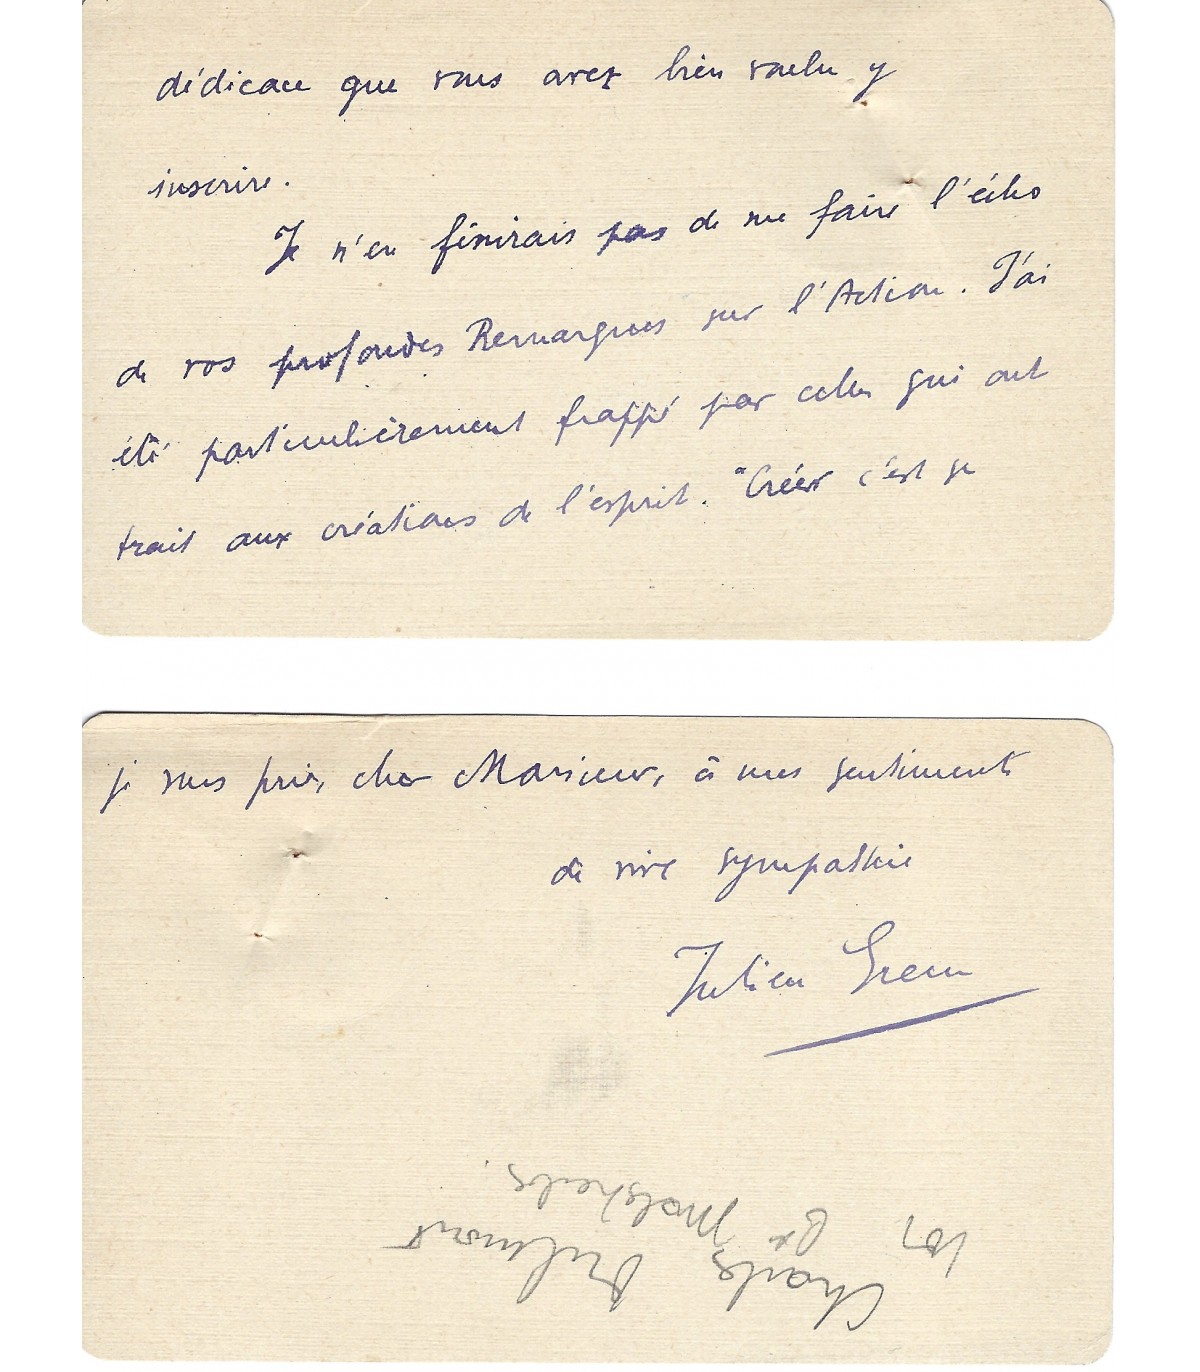 dédicace que vous avez bien voulu y
inscrire.
Je n'en finirais pas de me faire l'écho
de vos profondes Remarques sur l'Action. J'ai
été particulièrement frappé par celles qui ont
trait aux créations de l'esprit. "Créer c'est se
je vous prie, cher Monsieur, à mes sentiments
de vive sympathie
Julien Green
Charles
Bd Malesherbes.